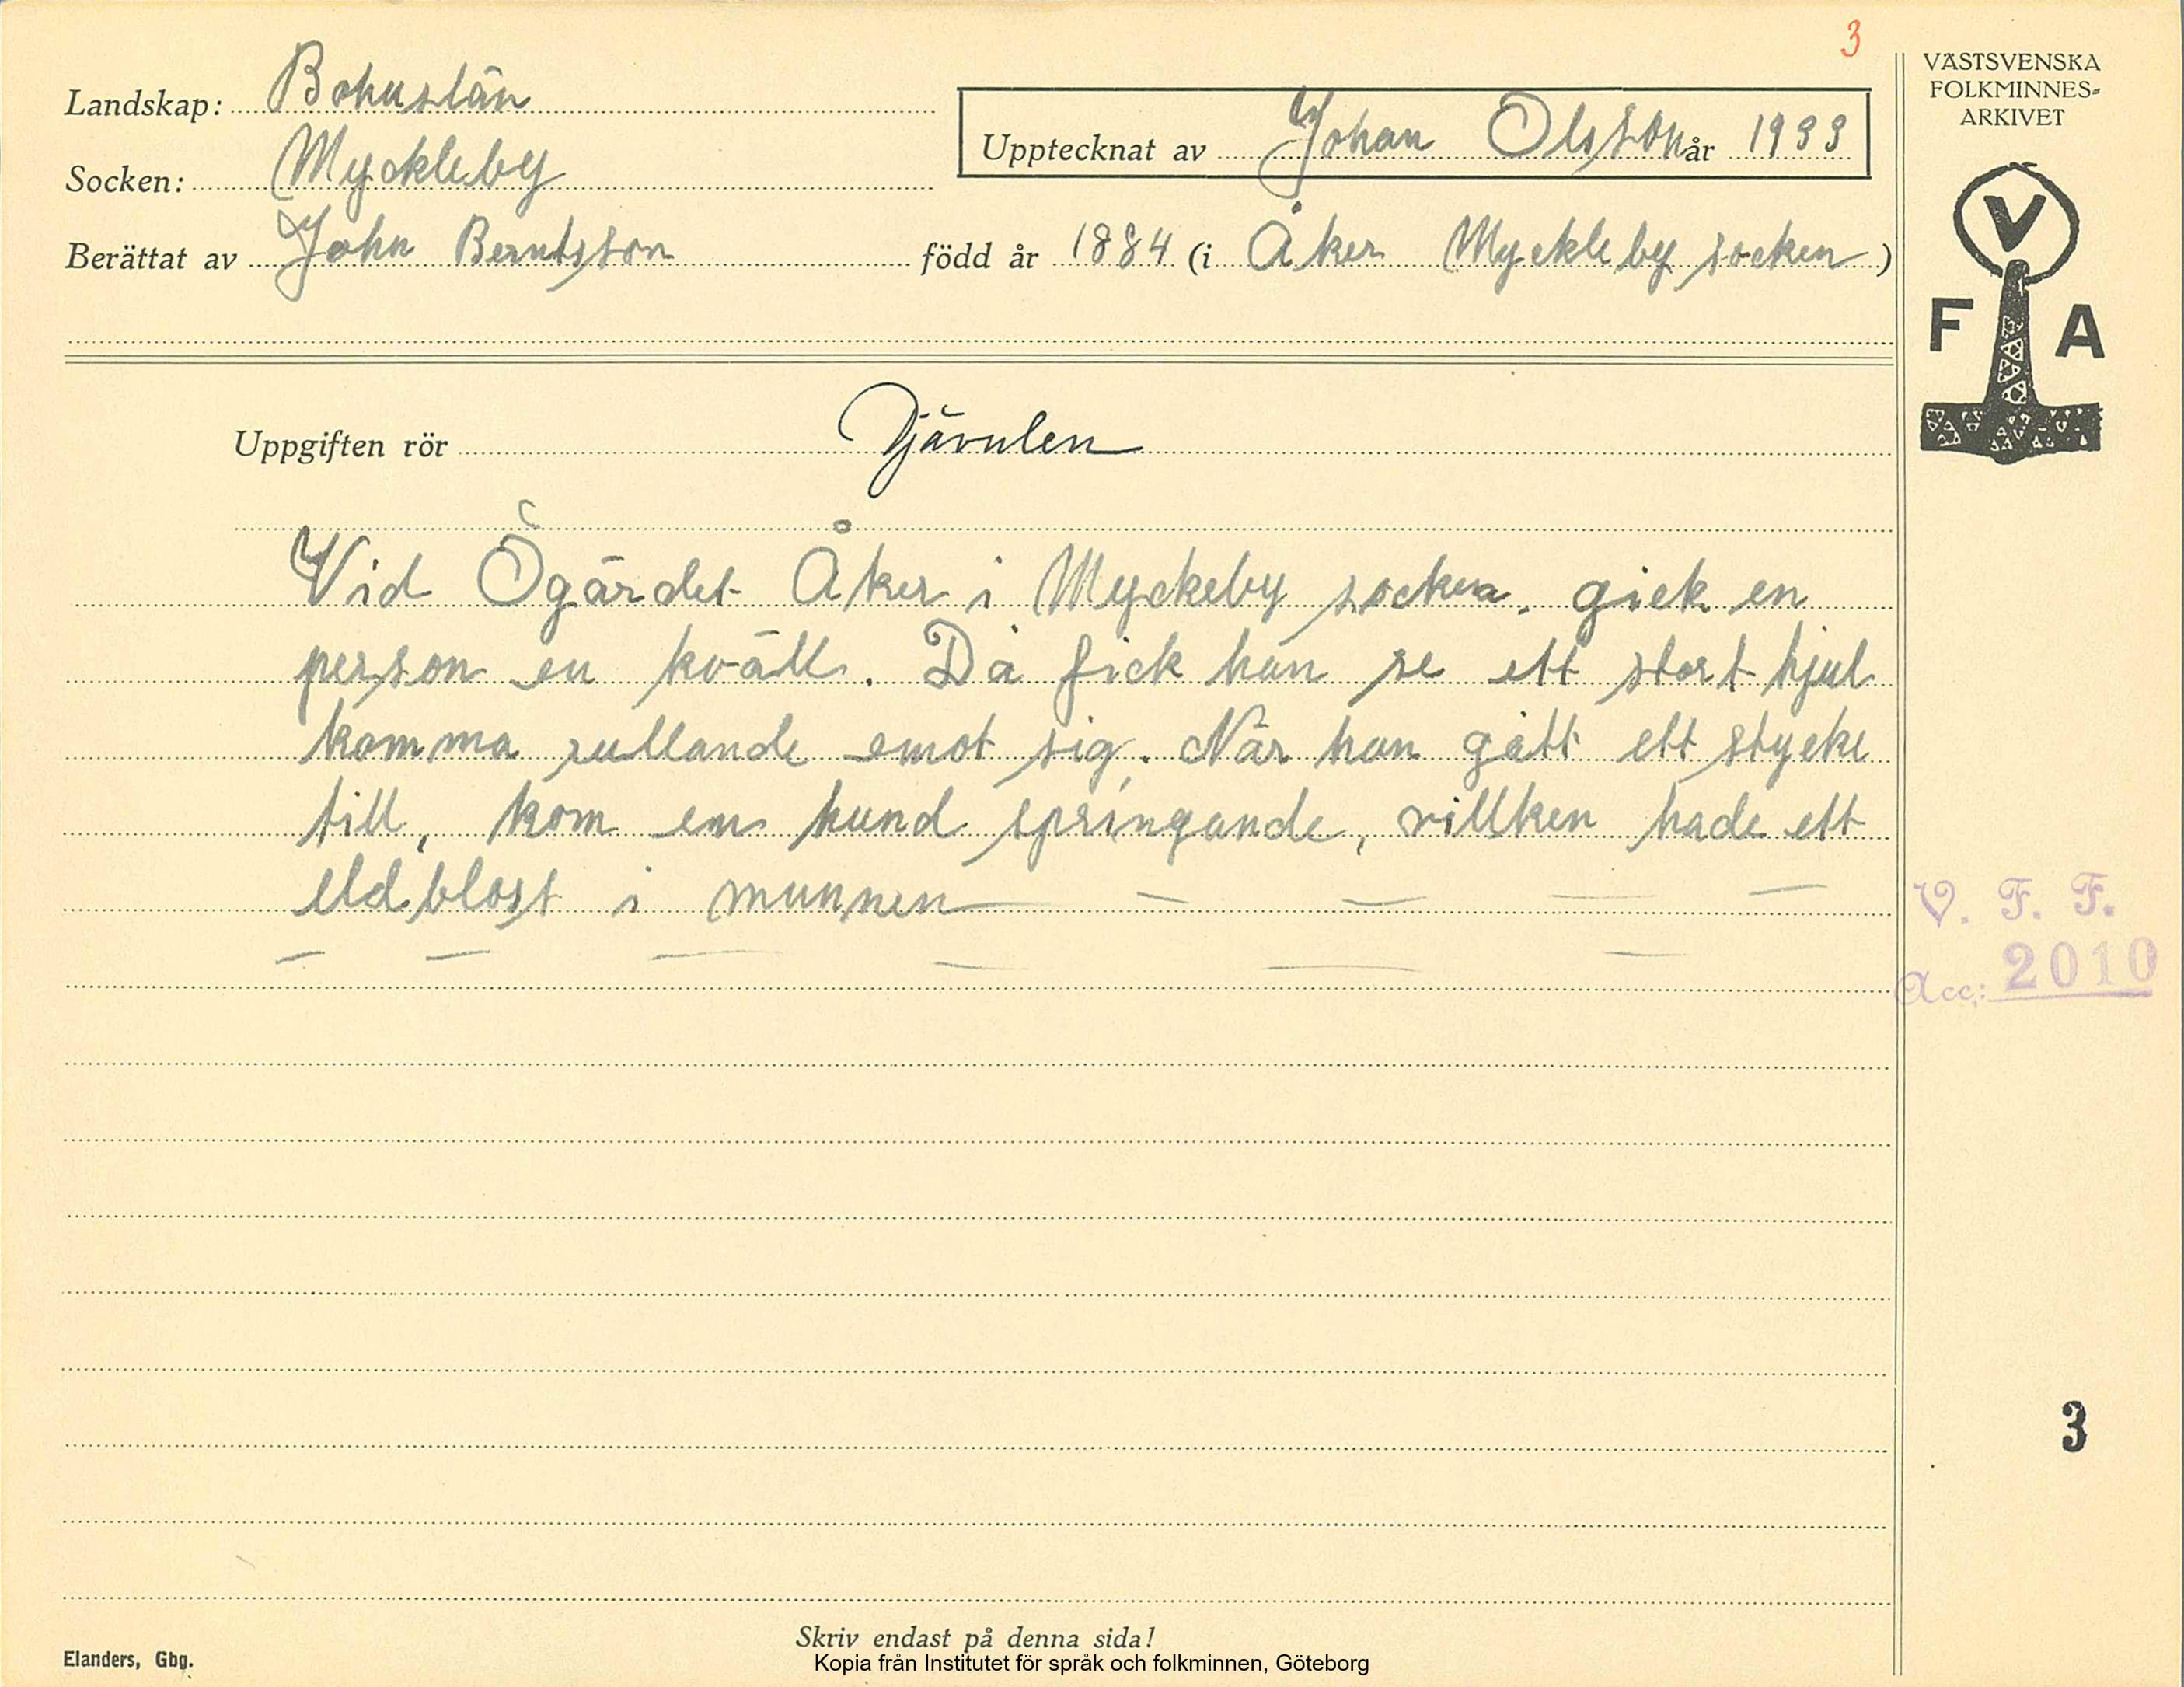 3
VÄSTSVENSKA
FOLKMINNES-
ARKIVET
Landskap: Bohuslän
Upptecknat av Johan Olsson år 1933
Socken: Myckleby
Berättat av John Berntsson född år 1884 (i Åker Myckleby socken)
V
F A
Uppgiften rör Djävulen
Vid Ögärdet Åker i Myckeby socken. gick en
person en kväll. Då fick han se ett stort hjul
komma rullande emot sig. När han gått ett stycke
till, kom en hund springande, villken hade ett
eldblost i munnen — — — — —
— — — — — —
V. F. F.
Acc: 2010
3
Skriv endast på denna sida!
Elanders, Gbg.
Kopia från Institutet för språk och folkminnen, Göteborg